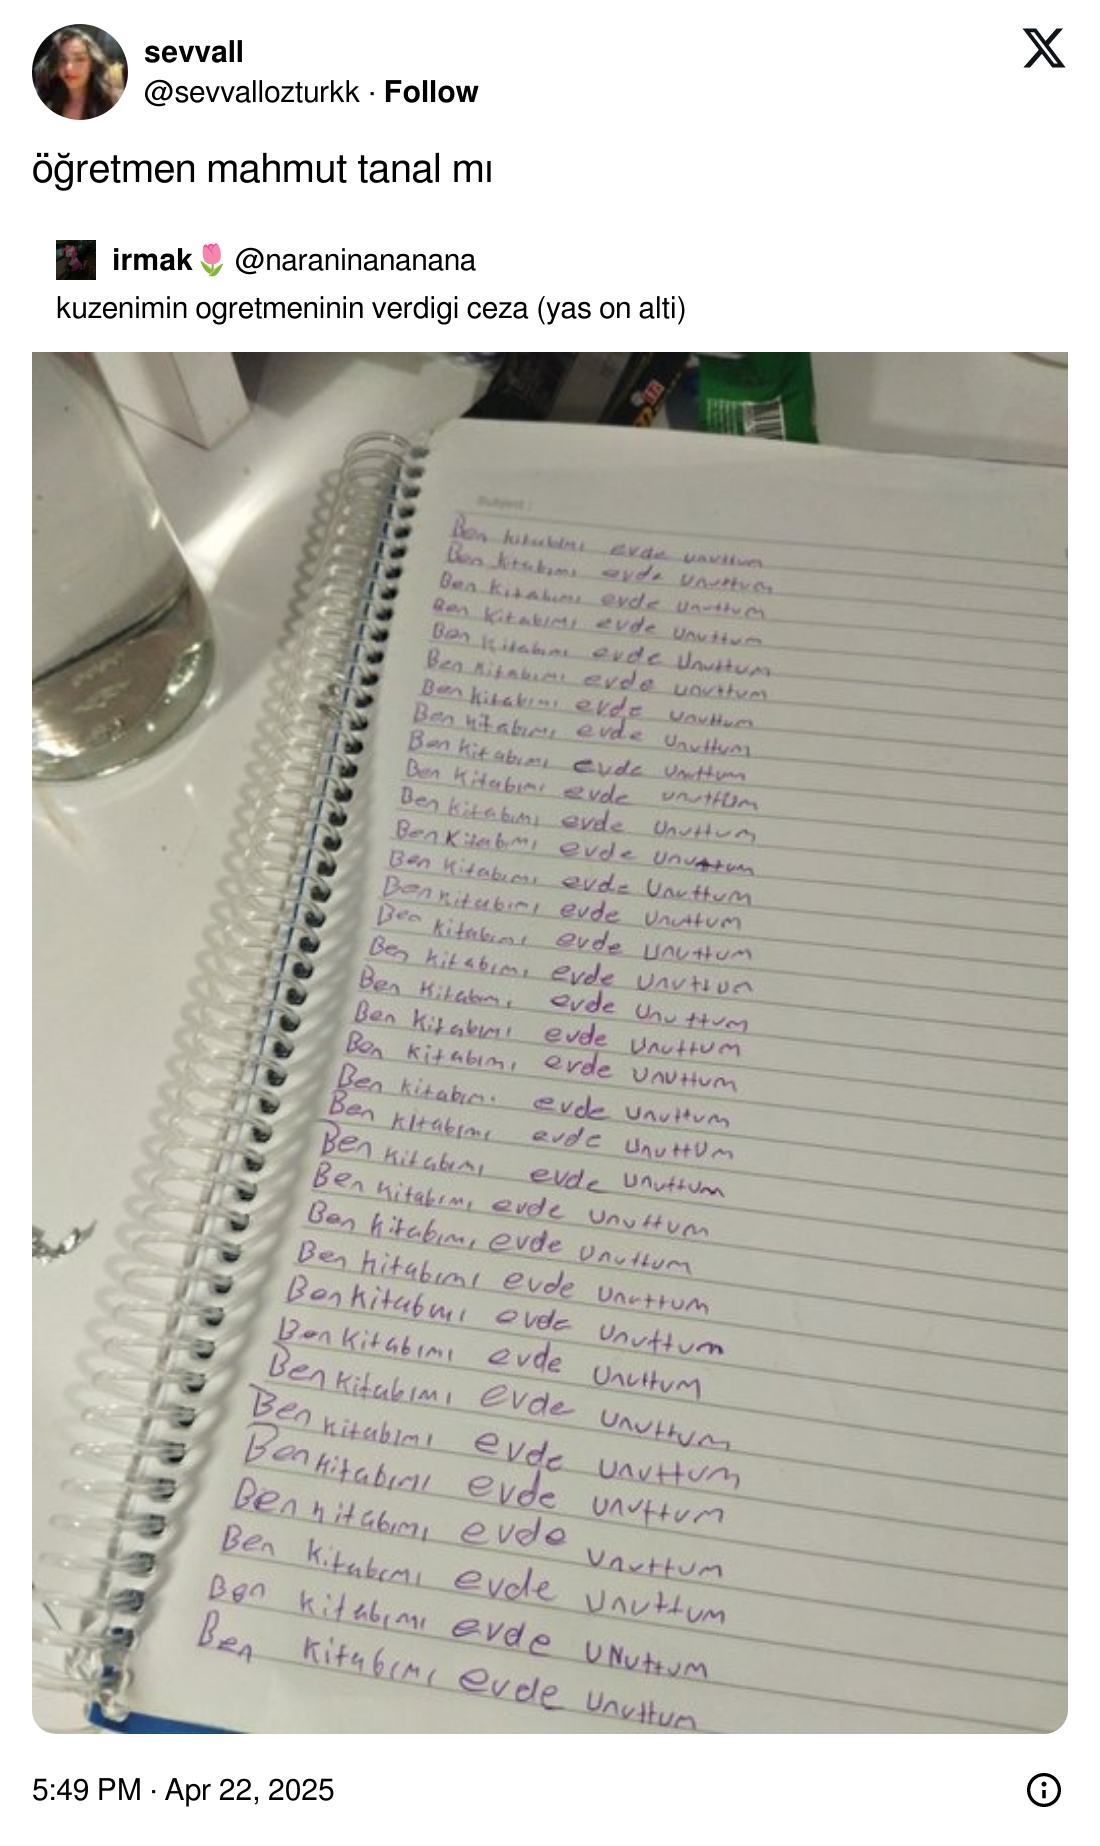 sevvall
@sevvallozturkk · Follow
öğretmen mahmut tanal mı
irmak🌷 @naraninananana
kuzenimin ogretmeninin verdigi ceza (yas on alti)
Subject :
Ben kitabımı evde unuttum
Ben kitabımı evde unuttum
Ben kitabımı evde unuttum
Ben kitabımı evde unuttum
Ben kitabımı evde unuttum
Ben kitabımı evde unuttum
Ben kitabımı evde unuttum
Ben kitabımı evde unuttum
Ben kitabımı evde unuttum
Ben kitabımı evde unuttum
Ben kitabımı evde unuttum
Ben kitabımı evde unuttum
Ben kitabımı evde unuttum
Ben kitabımı evde unuttum
Ben kitabımı evde unuttum
Ben kitabımı evde unuttum
Ben kitabımı evde unuttum
Ben kitabımı evde unuttum
Ben kitabımı evde unuttum
Ben kitabımı evde unuttum
Ben kitabımı evde unuttum
Ben kitabımı evde unuttum
Ben kitabımı evde unuttum
Ben kitabımı evde unuttum
Ben kitabımı evde unuttum
Ben kitabımı evde unuttum
Ben kitabımı evde unuttum
Ben kitabımı evde unuttum
Ben kitabımı evde unuttum
Ben kitabımı evde unuttum
Ben kitabımı evde unuttum
Ben kitabımı evde unuttum
Ben kitabımı evde unuttum
Ben kitabımı evde unuttum
5:49 PM · Apr 22, 2025